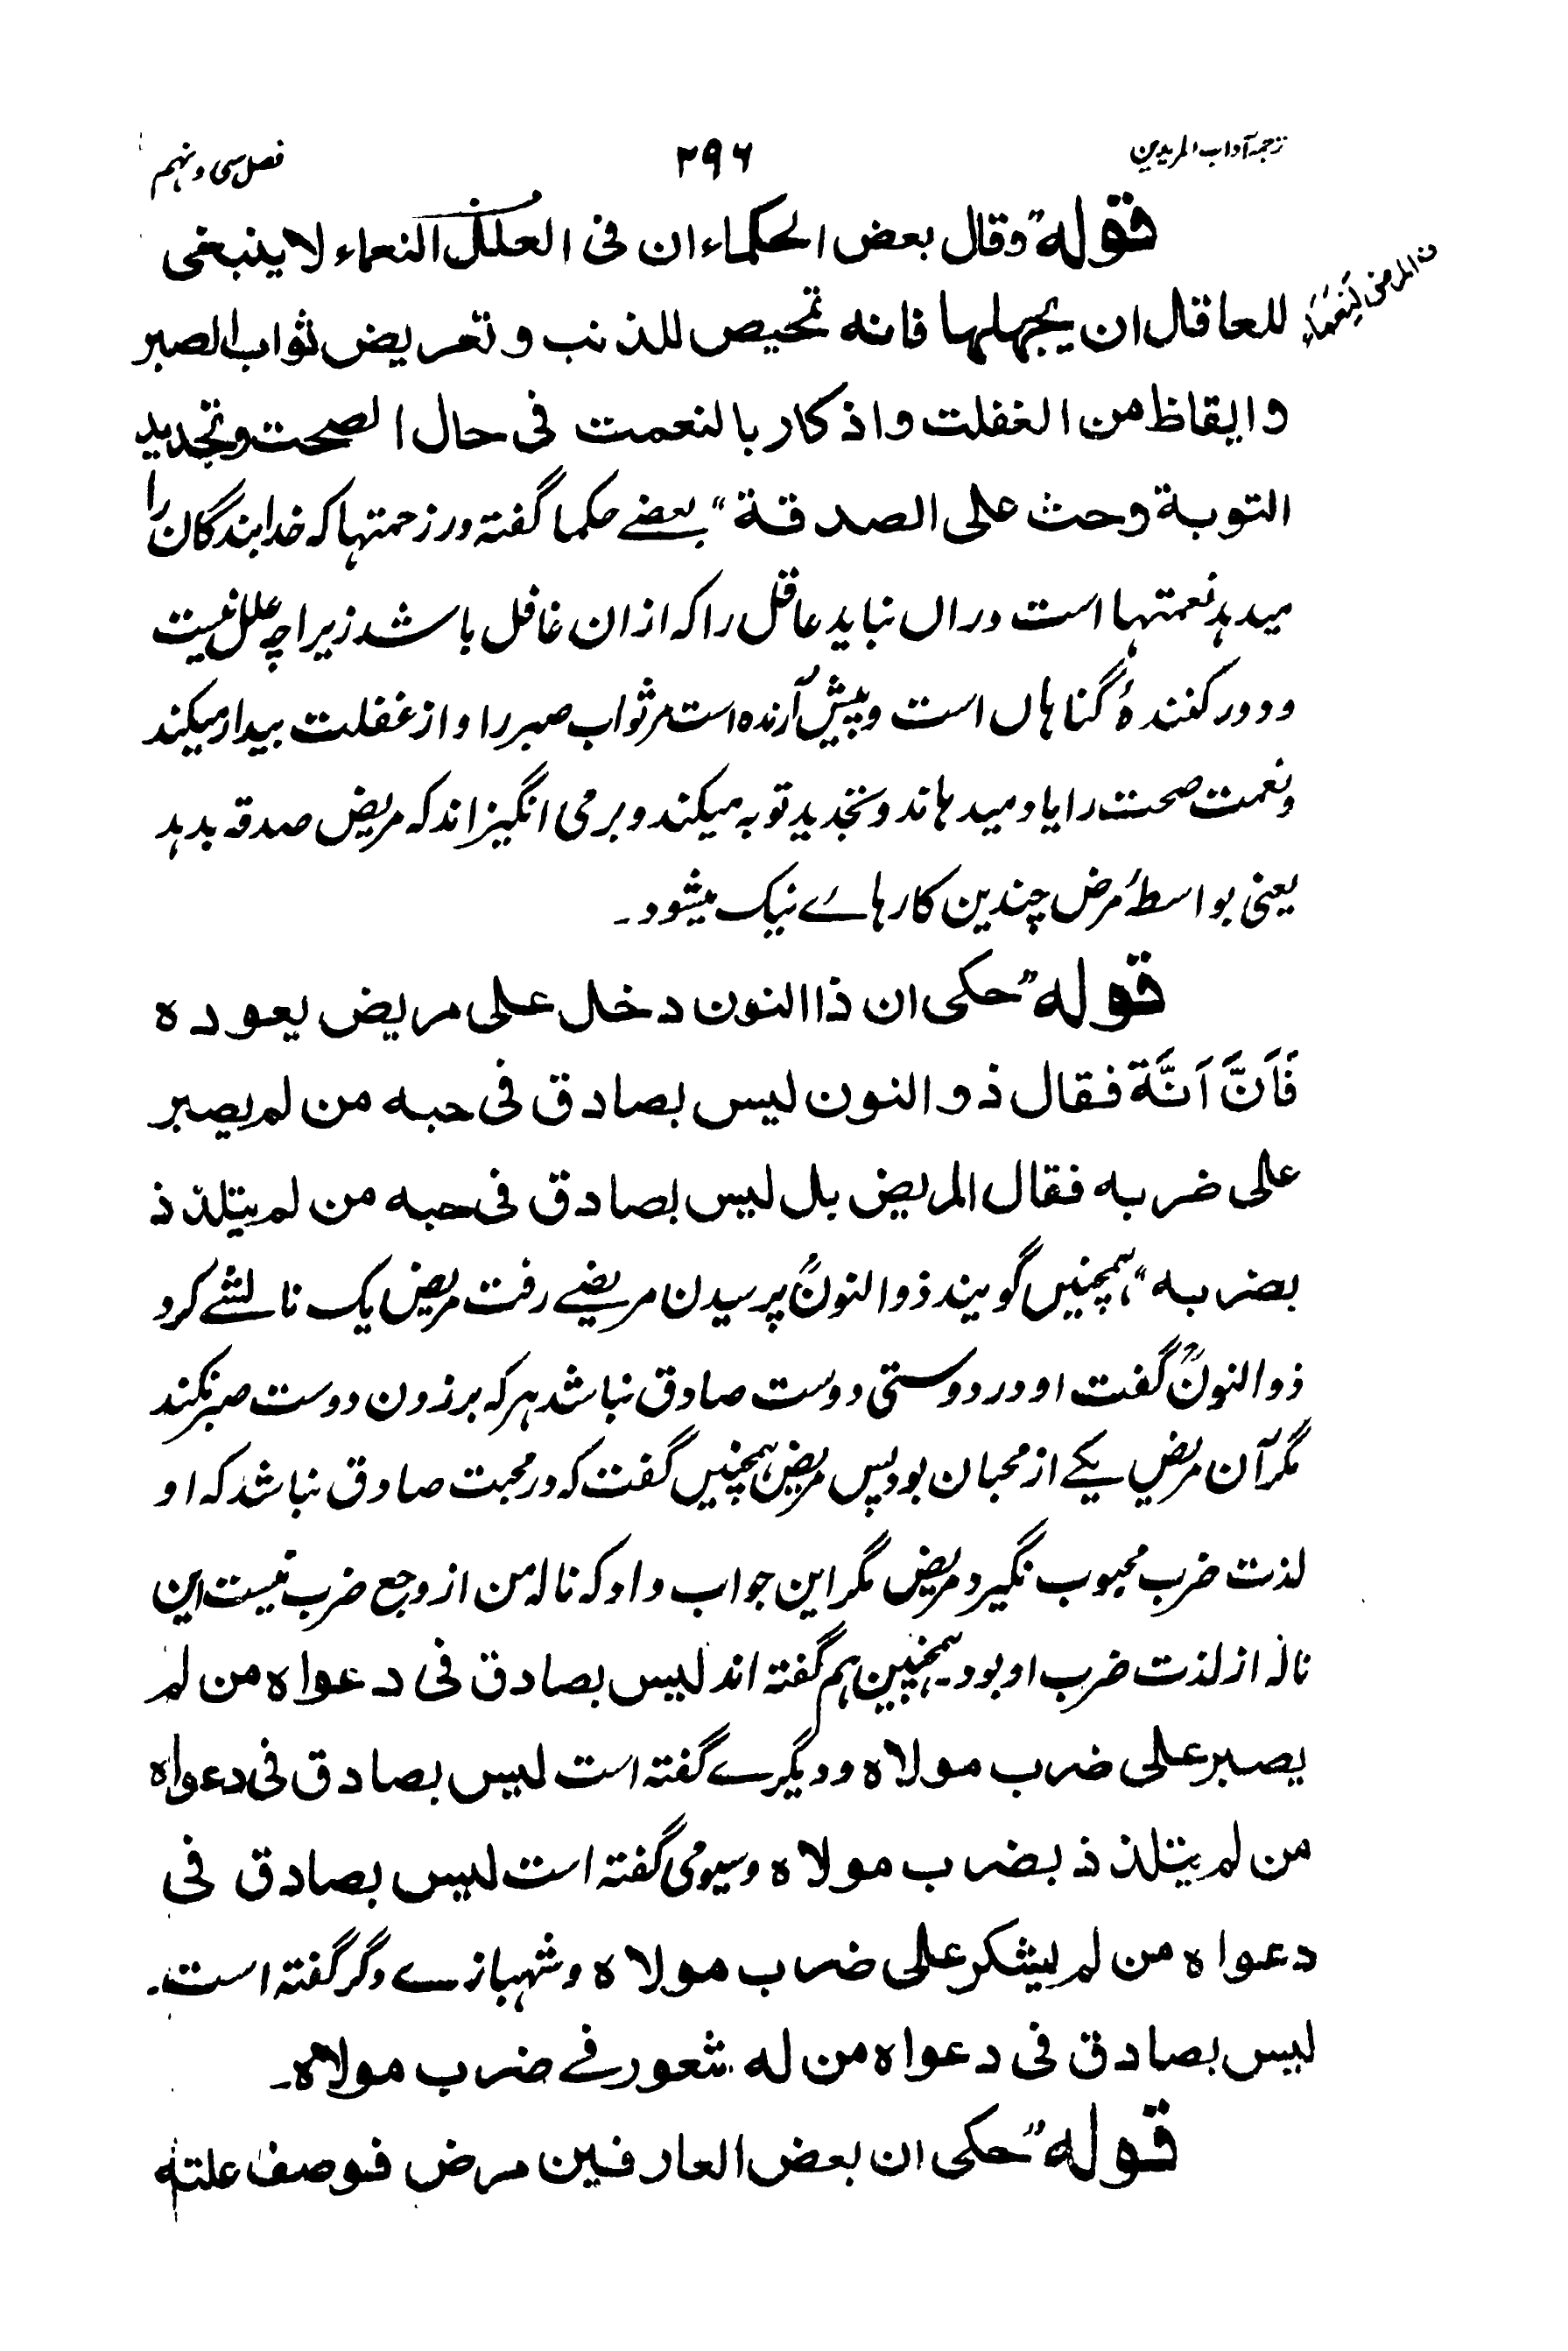 ترجمہ آداب المریدین ۲۹۶ فصل سی و نہم
قوله "وقال بعض الحکماء ان فی العلل النعماء لا ینبغی
للعاقل ان یجهلها فانه تمحیص للذنب و تعریض ثواب الصبر
و ایقاظ من الغفلت و اذکار بالنعمت فی حال الصحت و تجدید
التوبة وحث علی الصدقة" بعضے حکما گفتہ در زحمتہا کہ خدا بندگان را
میدہد نعمتہا است دراں نباید عاقل را کہ ازان غافل باشد زیراچہ علل نیست
و دور کنندۂ گناہاں است و پیش آرندہ است مر ثواب صبر را و از غفلت بیدار میکند
و نعمت صحت را یاد میدہاند و تجدید توبہ میکند و برمی انگیزاند کہ مریض صدقہ بدہد
یعنی بواسطۂ مرض چندین کارہاے نیک میشود۔
قوله "حکی ان ذا النون دخل علی مریض یعوده
فَاَنَّ اَنَّة فقال ذو النون لیس بصادق فی حبه من لم یصبر
علی ضربه فقال المریض بل لیس بصادق فی حبه من لم یتلذذ
بضربه" ہمچنیں گویند ذوالنونؒ پرسیدن مریضے رفت مریض یک نالشے کرد
ذوالنونؒ گفت او در دوستی دوست صادق نباشد ہر کہ بر زدن دوست صبر نکند
مگر آن مریض یکے از محبان بود پس مریض ہمچنیں گفت کہ در محبت صادق نباشد کہ او
لذت ضرب محبوب نگیرد مریض مگر این جواب داد کہ نالۂ من از وجع ضرب نیست این
نالہ از لذت ضرب او بود۔ ہمچنین ہم گفتہ اند لیس بصادق فی دعواه من لم
یصبر علی ضرب مولاه و دیگرے گفتہ است لیس بصادق فی دعواه
من لم یتلذذ بضرب مولاه و سیومی گفتہ است لیس بصادق فی
دعواه من لم یشکر علی ضرب مولاه و شہبازے دگر گفتہ است۔
لیس بصادق فی دعواه من له شعور فے ضرب مولاه۔
قوله "حکی ان بعض العارفین مرض فوصف علته